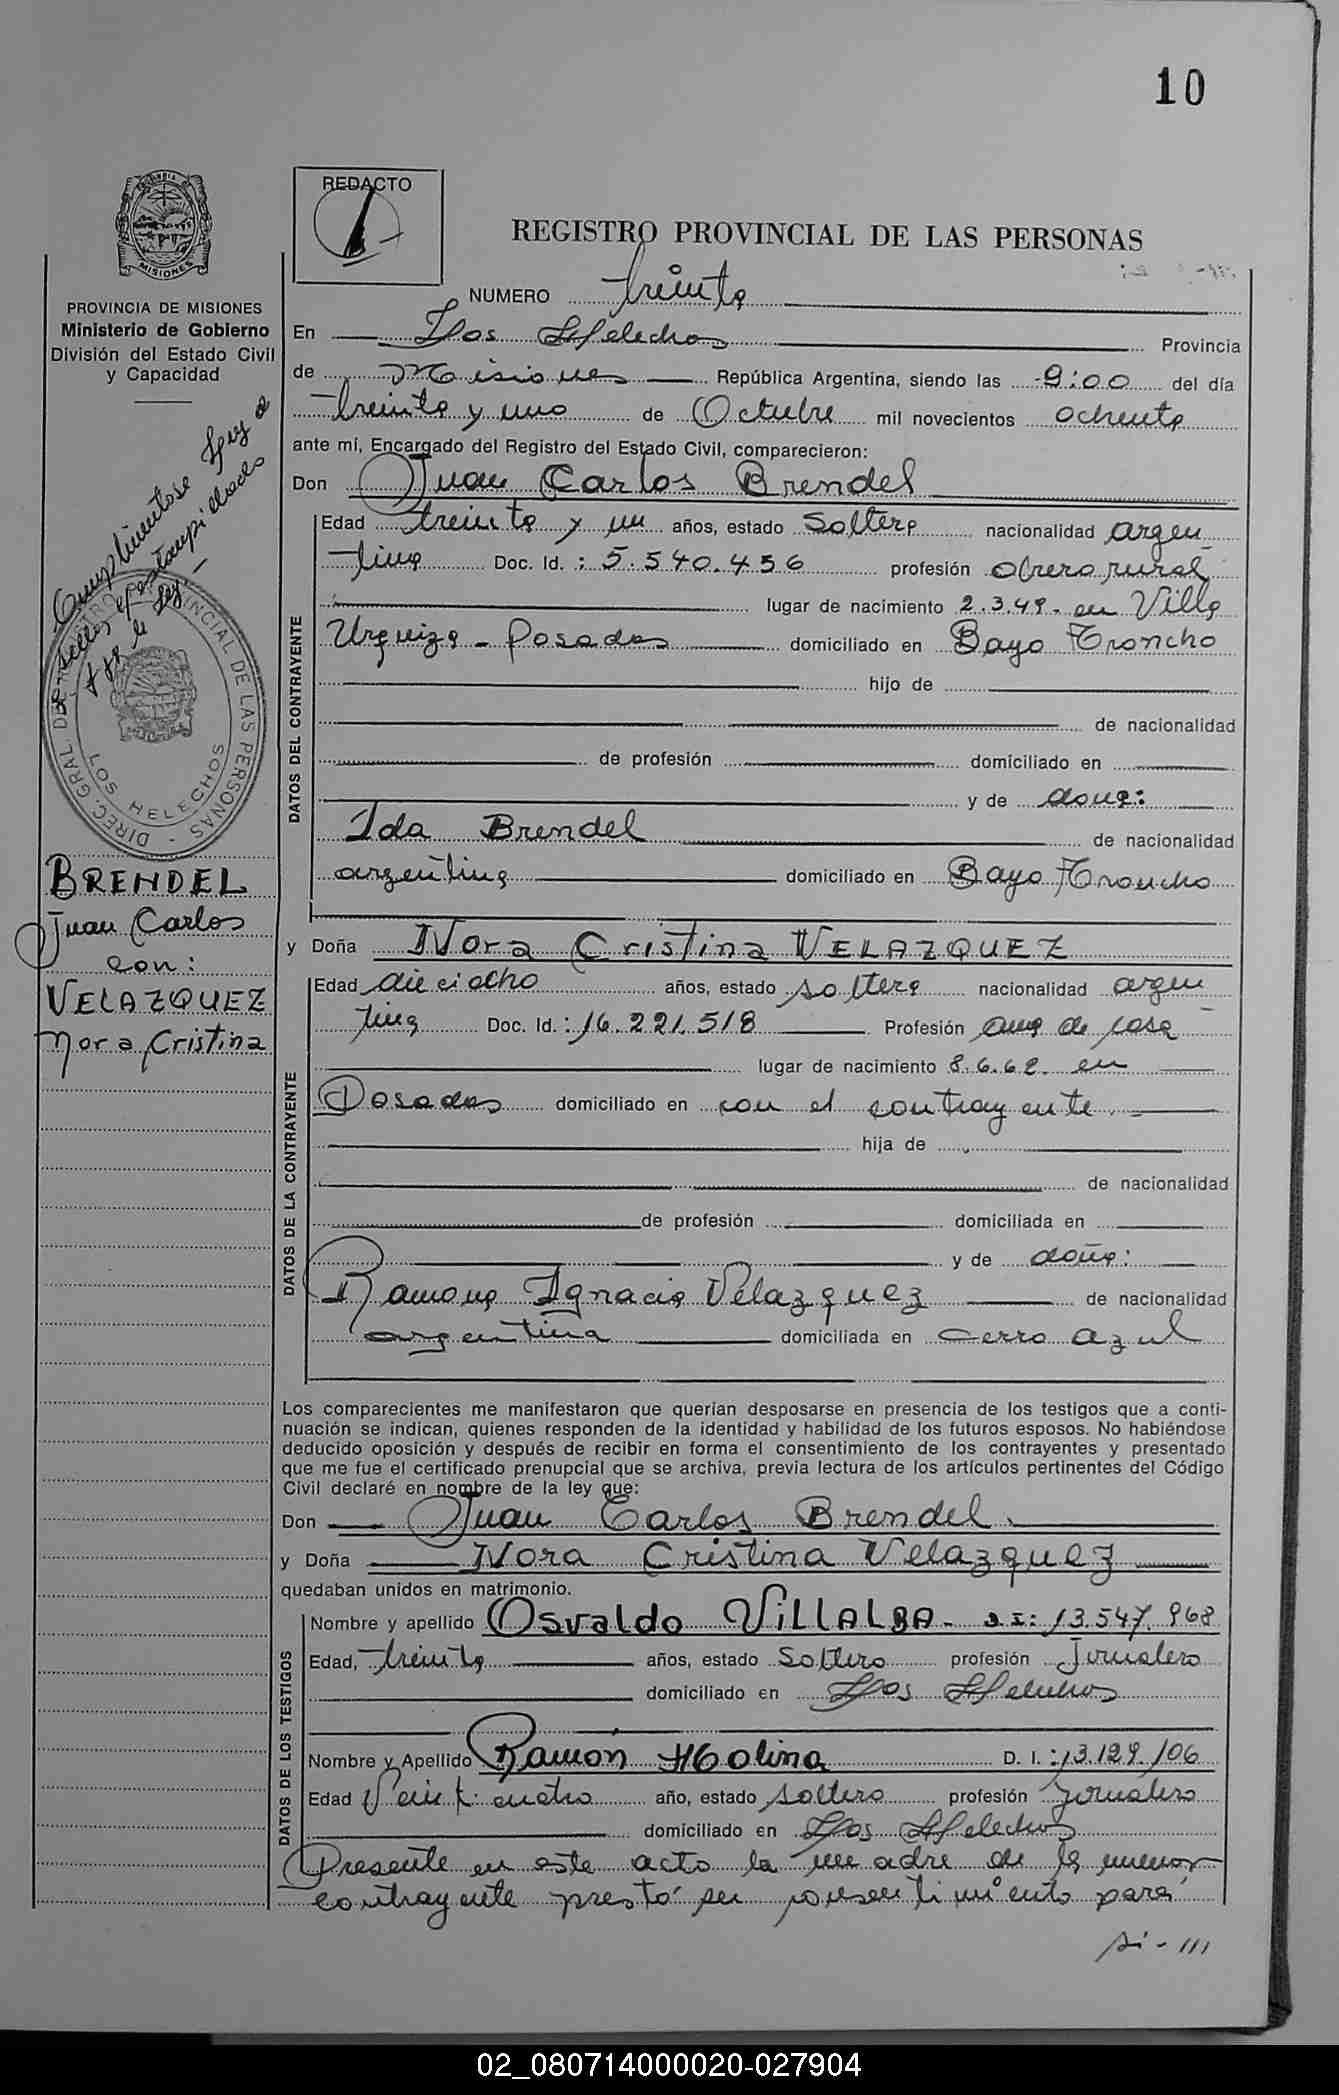 10
REDACTO
REGISTRO PROVINCIAL DE LAS PERSONAS
MISIONES
PROVINCIA DE MISIONES
Ministerio de Gobierno
División del Estado Civil
y Capacidad
NUMERO treinta
En Los Helechos Provincia
de Misiones República Argentina, siendo las 9:00 del día
treinta y uno de Octubre mil novecientos ochenta
ante mí, Encargado del Registro del Estado Civil, comparecieron:
Don Juan Carlos Brendel
DATOS DEL CONTRAYENTE
Edad treinta y un años, estado soltero nacionalidad argen
tina Doc. Id.: 5.540.456 profesión obrero rural
lugar de nacimiento 2.3.49. en Villa
Urquiza - Posadas domiciliado en Bayo Troncho
hijo de
de nacionalidad
de profesión domiciliado en
y de doña:
Ida Brendel de nacionalidad
argentina domiciliado en Bayo Troncho
DIREC. GRAL. DEL REGISTRO PROVINCIAL DE LAS PERSONAS
LOS HELECHOS
BRENDEL
Juan Carlos
con:
VELAZQUEZ
Nora Cristina
y Doña Nora Cristina VELAZQUEZ
DATOS DE LA CONTRAYENTE
Edad dieciocho años, estado soltera nacionalidad argen
tina Doc. Id.: 16.221.518 Profesión ama de casa
lugar de nacimiento 8.6.62. en
Posadas domiciliado en con el contrayente.
hija de
de nacionalidad
de profesión domiciliada en
y de doña:
Ramona Ignacia Velazquez de nacionalidad
argentina domiciliada en cerro azul
Los comparecientes me manifestaron que querían desposarse en presencia de los testigos que a conti-
nuación se indican, quienes responden de la identidad y habilidad de los futuros esposos. No habiéndose
deducido oposición y después de recibir en forma el consentimiento de los contrayentes y presentado
que me fue el certificado prenupcial que se archiva, previa lectura de los artículos pertinentes del Código
Civil declaré en nombre de la ley que:
Don Juan Carlos Brendel.
y Doña Nora Cristina Velazquez
quedaban unidos en matrimonio.
DATOS DE LOS TESTIGOS
Nombre y apellido Osvaldo VILLALBA - D.I: 13.547.968
Edad, treinta años, estado soltero profesión Jornalero
domiciliado en Los Helechos
Nombre y Apellido Ramón Molina D. I.: 13.129.106
Edad Veinticuatro año, estado soltero profesión jornalero
domiciliado en Los Helechos
Presente en este acto la madre de la menor
contrayente prestó su consentimiento para
si - ///
02_080714000020-027904